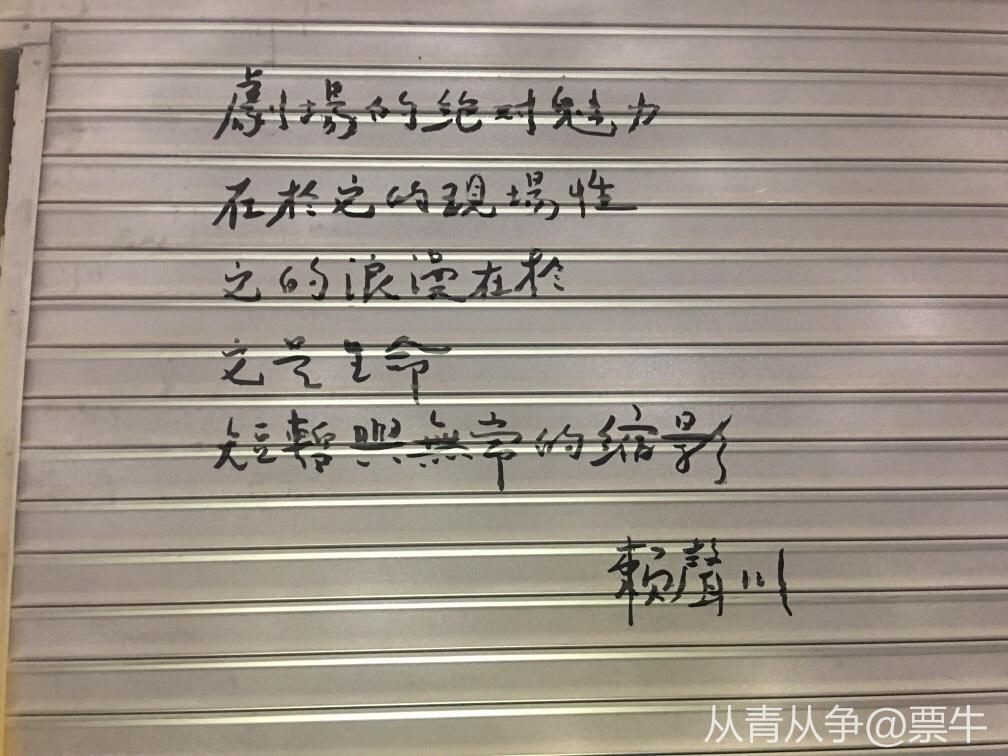 劇場的绝对魅力
在於它的現場性
它的浪漫在於
它是生命
短暫與無常的縮影
賴聲川
从青从争@票牛